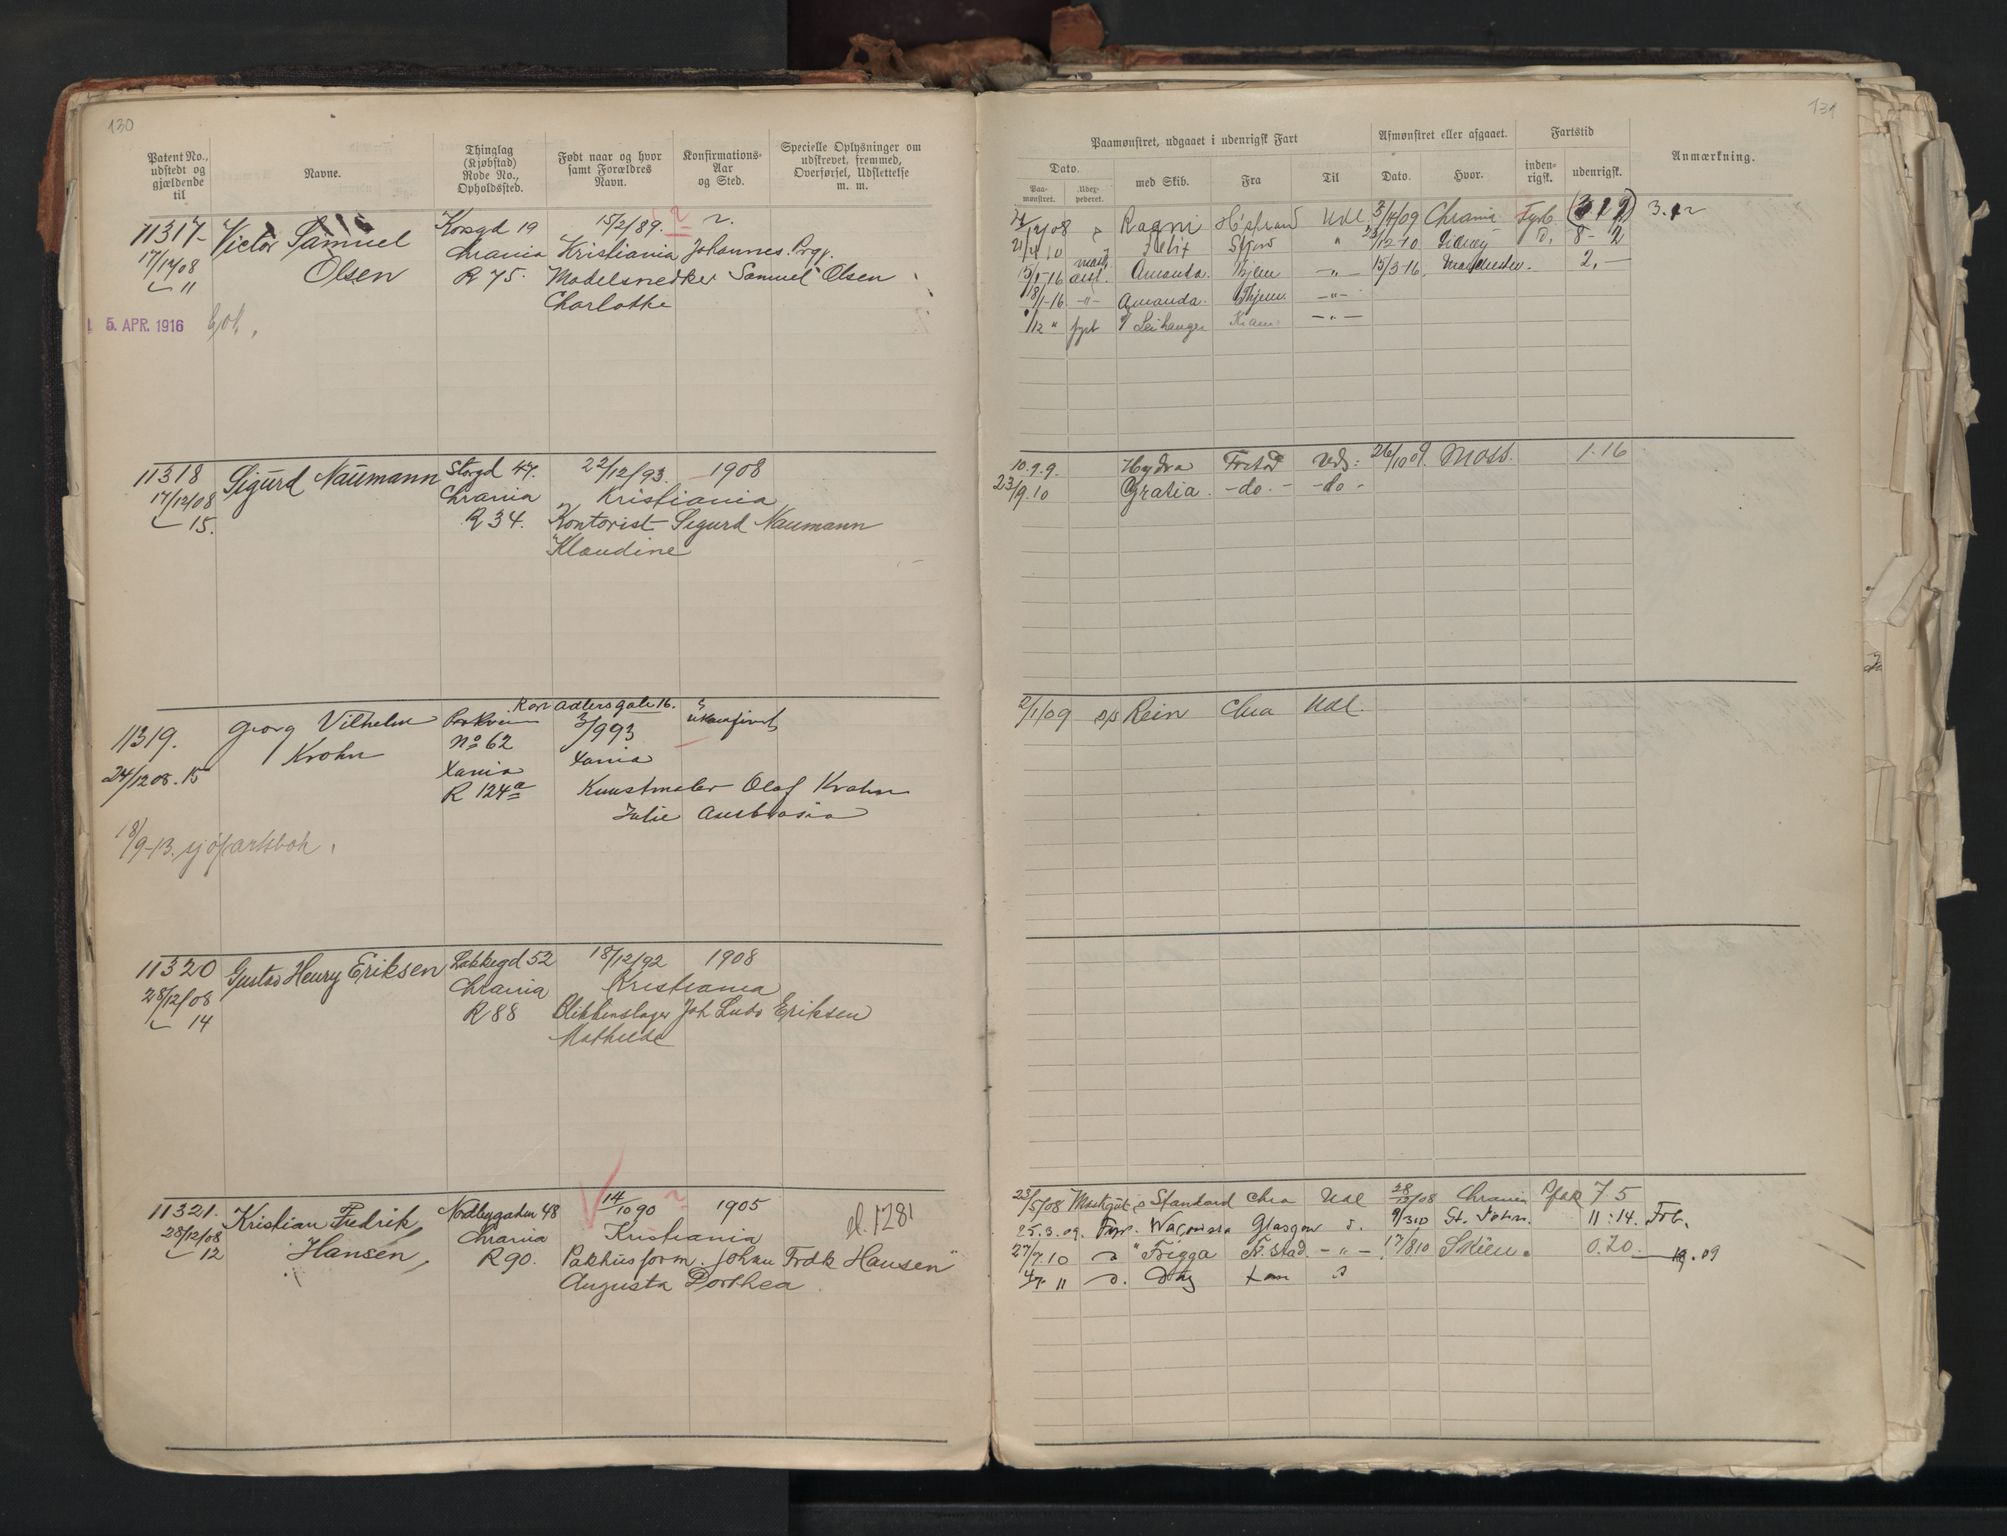 130
Patent No., udstedt og gjældende til
Navne.
Thinglag (Kjøbstad) Rode No., Opholdssted.
Født naar og hvor samt Forældres Navn.
Konfirmations-Aar og Sted.
Specielle Oplysninger om udskrevet, fremmed, Overførsel, Udslettelse m. m.
11317-
Victor Samuel
Korsgd 19
15/2/89.
17/12/08
Olsen
Chrania
Kristiania Johannes. Prgj.
" 11
R 75.
Modelsnedker Samuel Olsen
Charlotte
5. APR. 1916
11318
Sigurd Naumann
Storgd 47.
22/12/93.
1908
17/12/08
Chrania
Kristiania
15.
R 34.
Kontorist Sigurd Naumann
Klaudine
Adlersgate 16.
11319.
Georg Vilhelm
3/993
ukonfirmt
Krohn
No 62
24/12 08. 15
Xania
Xania
R 124a
Kunstmaler Olaf Krohn
Julie Ambrosia
18/9-13. sjøfartsbok.
11320
Gustav Henry Eriksen
Lakkegd 52
18/12/92
1908
28/12/08
Chrania
Kristiania
14
R 88
Blikkenslager Joh Ludv Eriksen
Mathilde
11321.
Kristian Fredrik
Nordbygaden 48
14/10 90
1905
el. 1281
28/12/08
Hansen
Chrania
Kristiania
12
R 90.
Pakhusform. Johan Fredk Hansen
Augusta Dorthea
131
Paamønstret, udgaaet i udenrigsk Fart
Afmønstret eller afgaaet.
Fartstid
Anmærkning.
Dato.
Paa-mønstret.
Udex-pederet.
med Skib.
Fra
Til
Dato.
Hvor.
inden-rigsk.
udenrigsk.
Ragni
Udl
3/4/09
Chrania
Fyrb.
3.12
21/4 10
23/12-10
8-2
15/1-16
Amanda.
15/3-16
Manchester.
2.-
18/1-16
Amanda.
1/12 "
10.9.9.
Hydra
Frstad
Uds:
26/10 09
Moss.
1.16
23/9.10
Gratia.
-do.-
-do-
2/1/09
D/s
Rein
Chra
Udl.
23/5/08
Standard
Chra
Udl
28/12/08
Chrania
7.5
25.3.09.
Glasgow
9/3 10
St. John.
11:14.
Frb.
27/7.10
Frigga
Fr.stad
17/8 10
Skien.
0.20
09
4/7 11
Dag